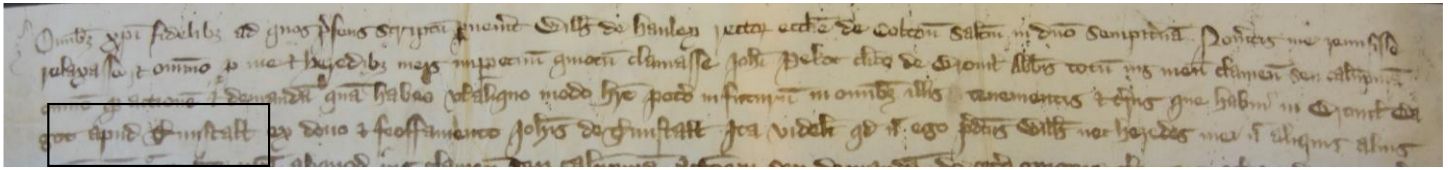 Omnib3 xpi fidelib3 ad quos p'sens scriptu puen'it Will's de hanley rector eccl'ie de Colton Salt'm in d'no sempit'nā Nov'itis me remisisse
relaxasse & omnino p me & heredib3 meis inppetuū quietū clamasse Joh'i Pelot cl'ico de Bromle Abb'is totū ius meū clameū seu calūpniā
actionē & demandā quā habeo vl' aliquo modo h're pot'o in futurū in omnib3 illis tenementis & t'ris que habui in Bromle
apud Tunstall ex dono & feoffamento Joh'is de Tunstall Ita videl't qd n' ego p'd'c'us Will's nec heredes mei n' aliquis alius